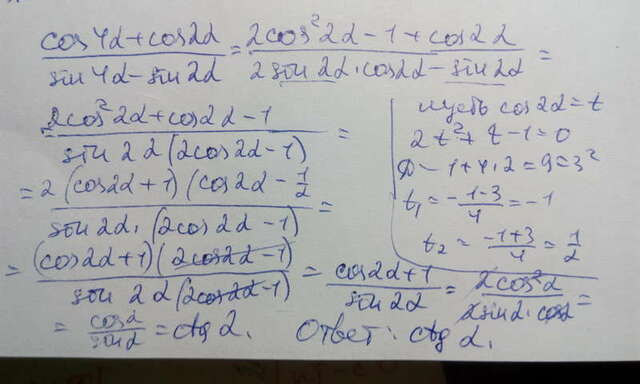 cos4α+cos2α/sin4α-sin2α = 2cos²2α-1+cos2α/2sin2α·cos2α-sin2α =
2cos²2α+cos2α-1/sin2α(2cos2α-1) =
= 2(cos2α+1)(cos2α-1/2)/sin2α·(2cos2α-1) =
= (cos2α+1)(2cos2α-1)/sin2α(2cos2α-1) = cos2α+1/sin2α = 2cos²α/2sinα·cosα =
= cosα/sinα = ctgα. Ответ: ctgα.
пусть cos2α=t
2t²+t-1=0
D=1+4·2=9=3²
t₁=-1-3/4=-1
t₂=-1+3/4=1/2